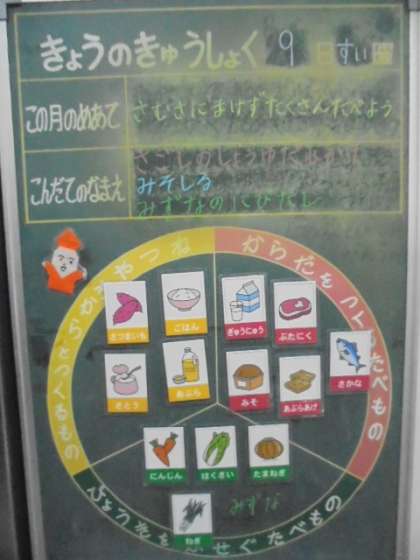 きょうのきゅうしょく 9日すい曜
この月のめあて
さむさにまけずたくさんたべよう
こんだてのなまえ
さごしのしょうゆだれかけ
みそしる
みずなのにびたし
ねつやちからとなるもの
からだをつくるたべもの
さつまいも
ごはん
ぎゅうにゅう
ぶたにく
さかな
さとう
あぶら
みそ
あぶらあげ
にんじん
はくさい
たまねぎ
ねぎ
みずな
びょうきをふせぐたべもの